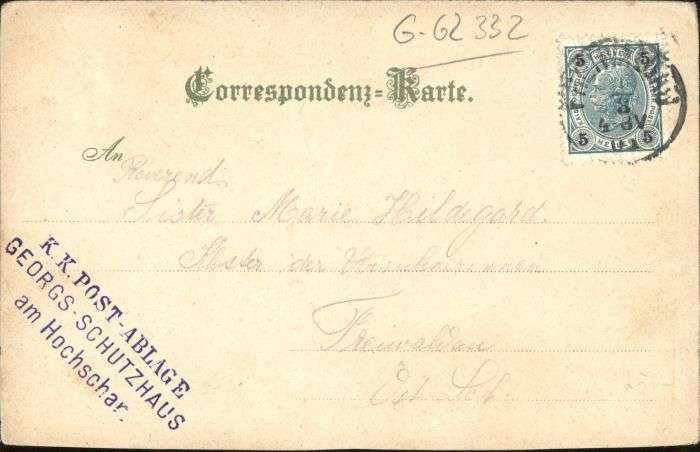 G-62 332
Correspondenz-Karte.
An
Reverend
Sister Marie Hildegard
Kloster der Ursulinerinnen
Freiwaldau
Öst. Sch.
K.K. POST-ABLAGE
GEORGS-SCHUTZHAUS
am Hochschar.
5 5
5 5
HELLER